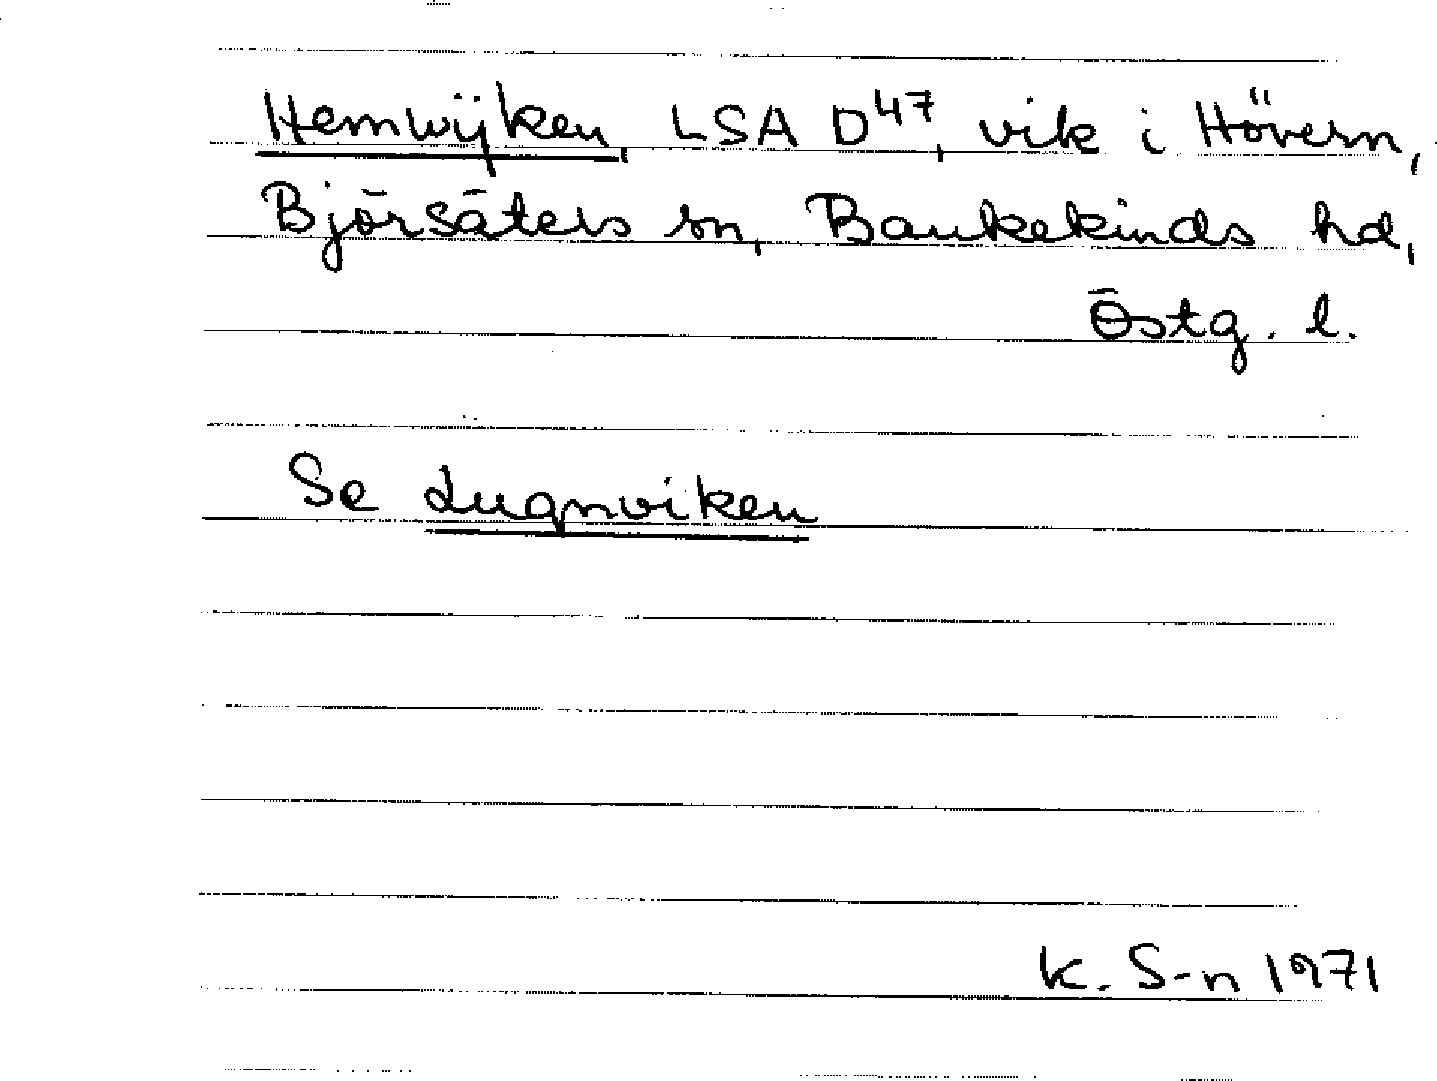 Hemwÿken, LSA D47, vik i Hövern,
Björsäters sn, Bankekinds hd,
Östg. l.
Se Lugnviken
K. S-n 1971